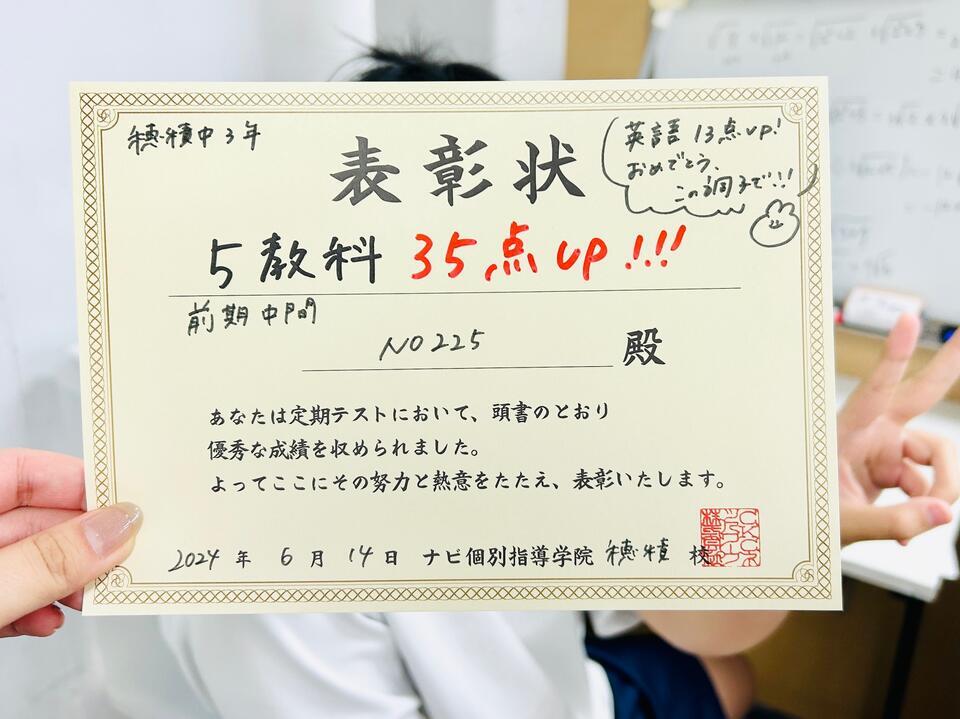 穂積中3年
表彰状
英語 13点up!
おめでとう、
この調子で!!
5教科 35点up!!!
前期中間
NO225 殿
あなたは定期テストにおいて、頭書のとおり
優秀な成績を収められました。
よってここにその努力と熱意をたたえ、表彰いたします。
2024 年 6 月 14 日 ナビ個別指導学院 穂積 校